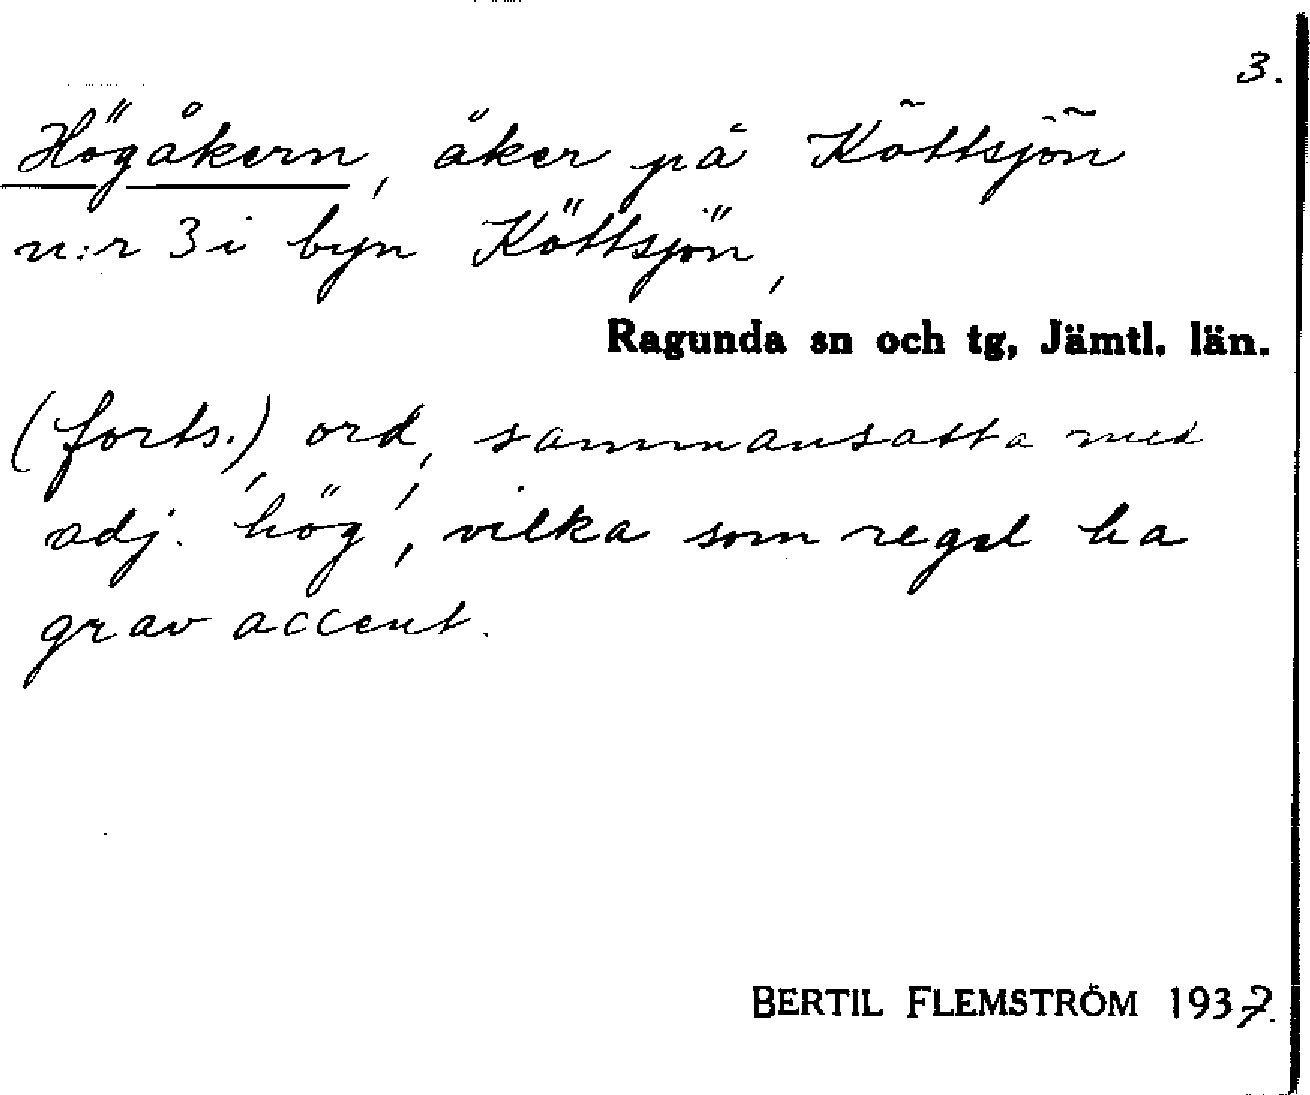 3.
Högåkern, åker på Köttsjön
n:r 3 i byn Köttsjön,
Ragunda sn och tg, Jämtl. län.
(forts.) ord, sammansatta med
adj. 'hög', vilka som regel ha
grav accent.
BERTIL FLEMSTRÖM 1937.